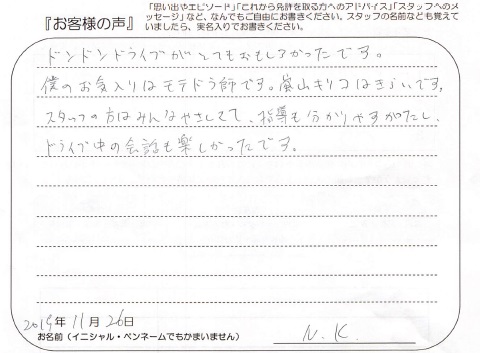 『お客様の声』
「思い出やエピソード」「これから免許を取る方へのアドバイス」「スタッフへのメ
ッセージ」など、なんでもご自由にお書きください。スタッフの名前なども覚えて
いましたら、実名入りでお書きください。
ドンドンドライブがとてもおもしろかったです。
僕のお気入りはモテドラ師です。嵐山キリコはきらいです。
スタッフの方はみんなやさしくて、指導も分かりやすかったし、
ドライブ中の会話も楽しかったです。
2019年 11月 26日
お名前（イニシャル・ペンネームでもかまいません）
N. K.